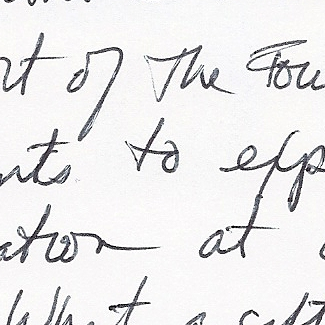 rt of The Fou
nts to exp
ation at
What a